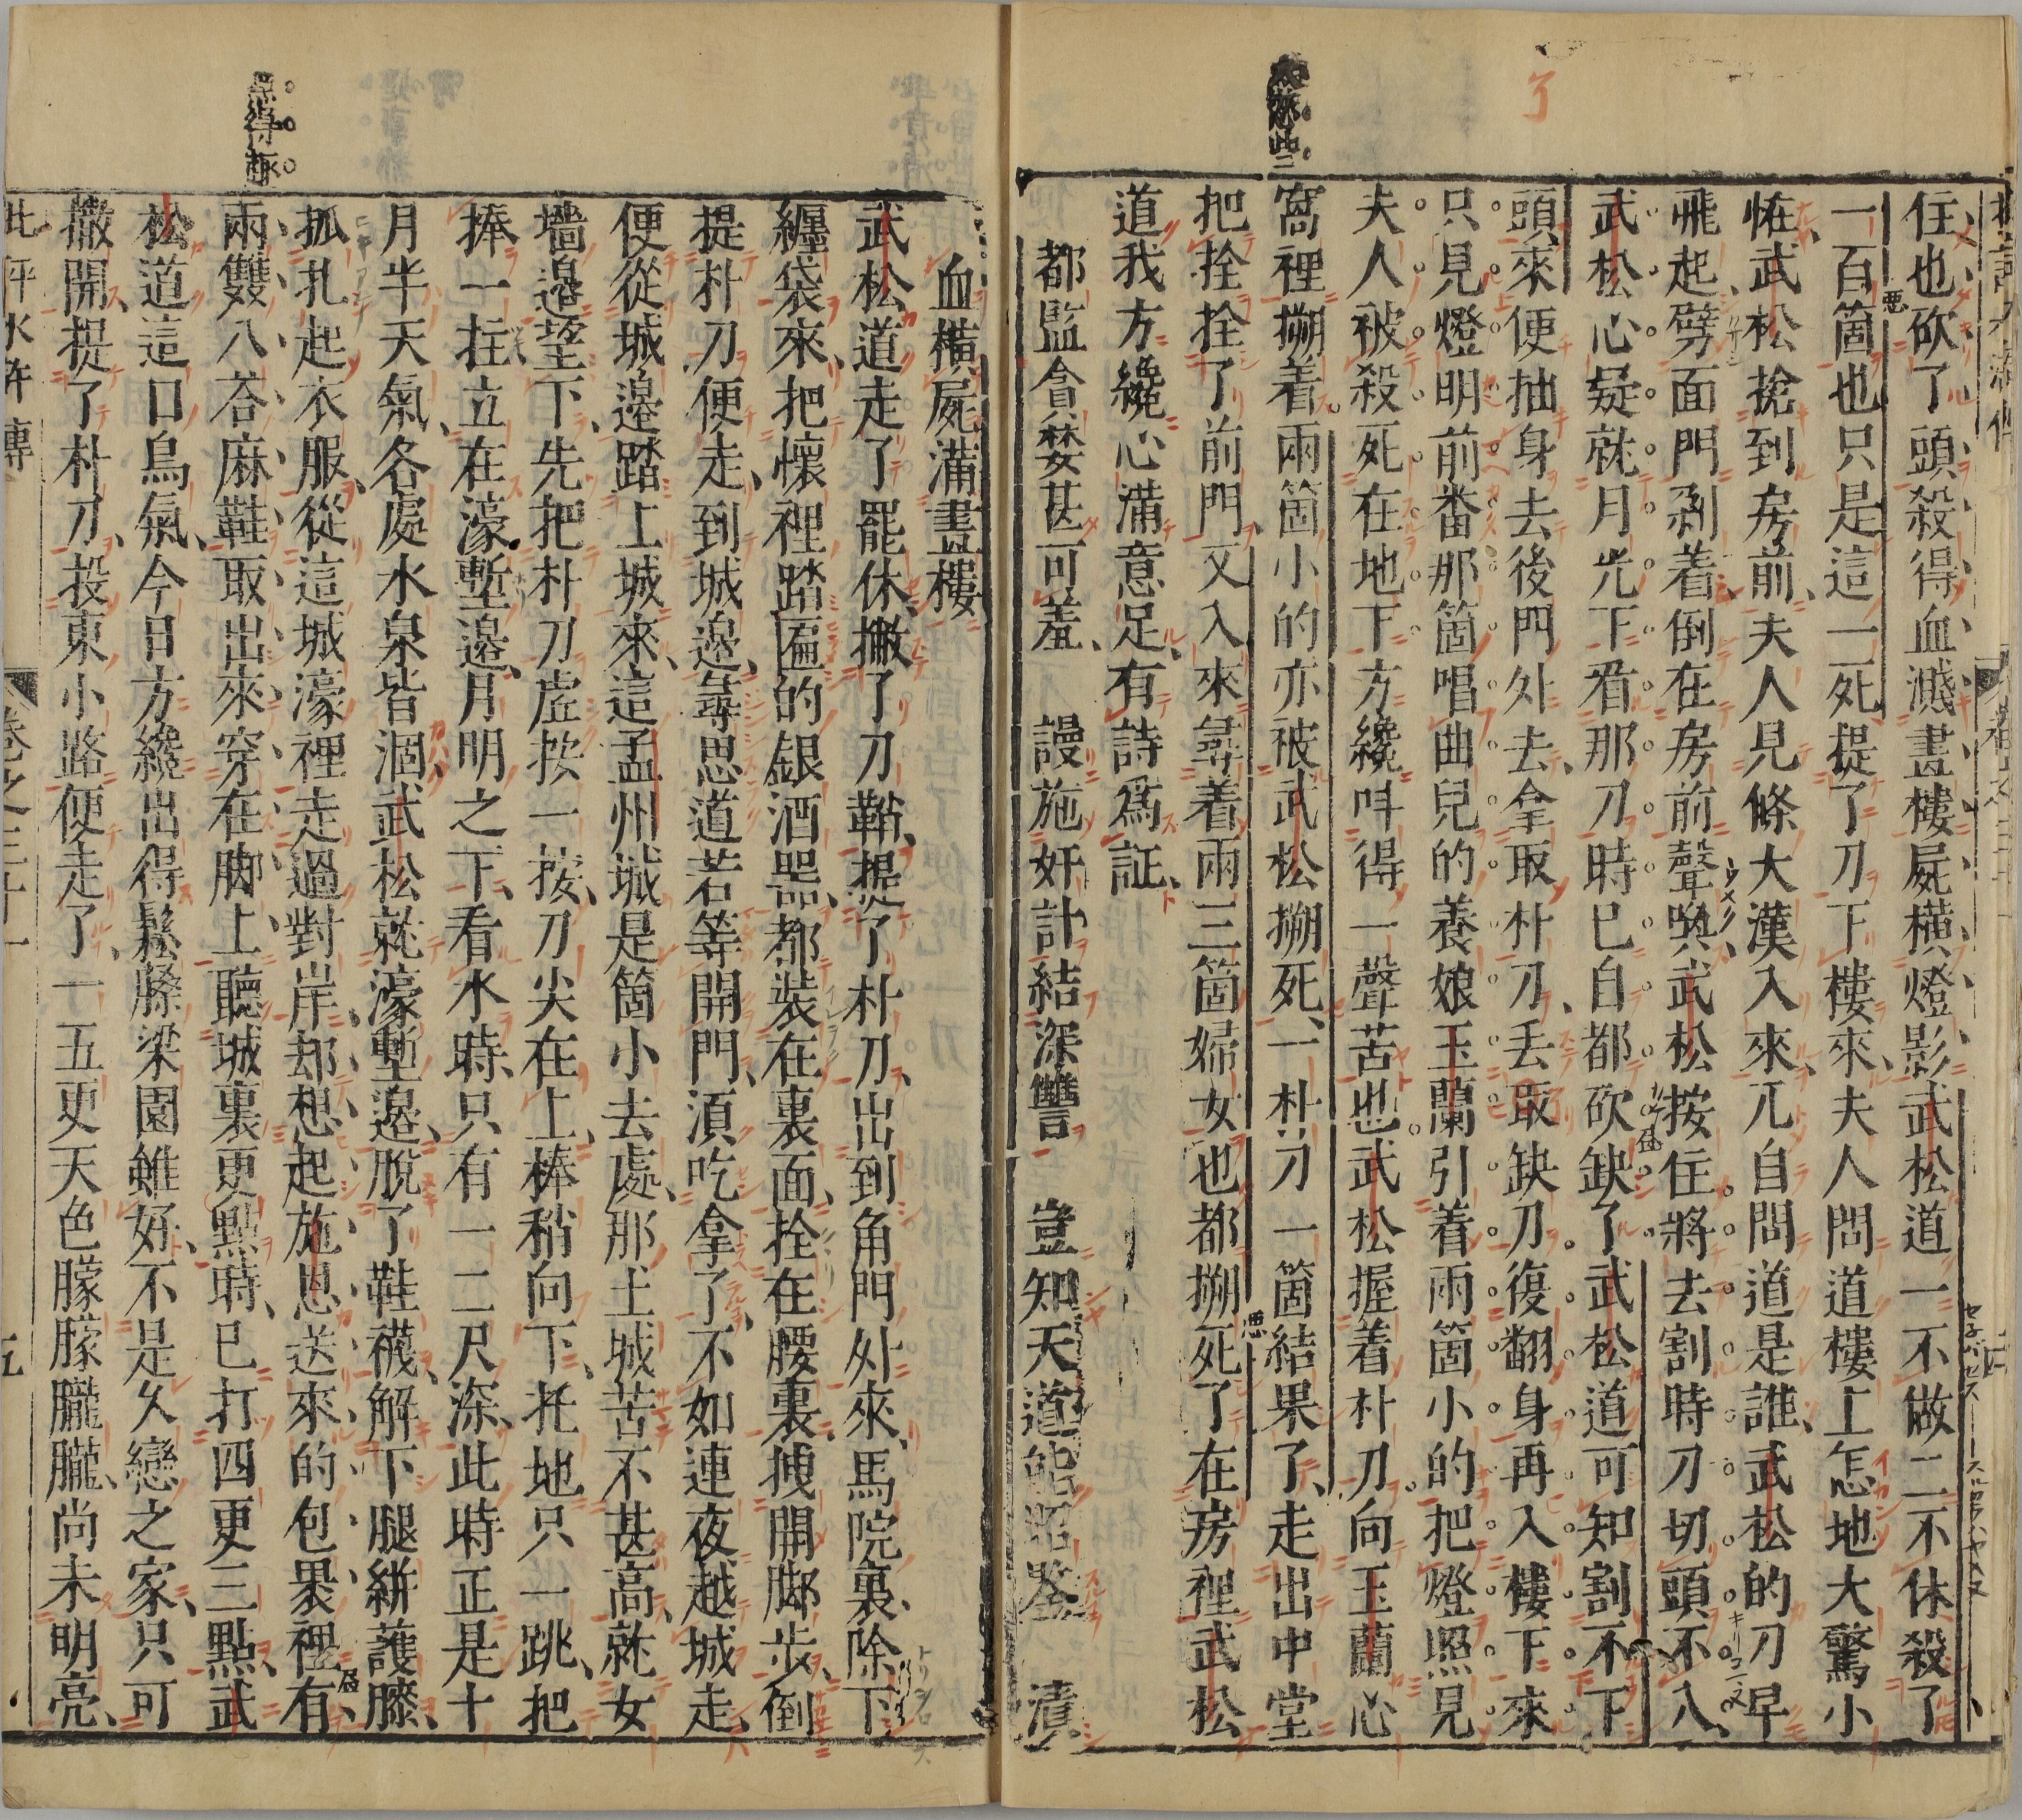 住也砍了頭殺得血濺畫樓屍橫燈影武松道一不做二不休殺了
一百箇也只是這一死提了刀下樓來夫人問道樓上怎地大驚小
恠武松搶到房前夫人見條大漢入來兀自問道是誰武松的刀早
飛起劈面門剁着倒在房前聲喚武松按住將去割時刀切頭不入
武松心疑就月光下看那刀時已自都砍缺了武松道可知割不下
頭來便抽身去後門外去拿取朴刀丟取缺刀復翻身再入樓下來
只見燈明前番那箇唱曲兒的養娘玉蘭引着兩箇小的把燈照見
夫人被殺死在地下方纔呌得一聲苦也武松握着朴刀向玉蘭心
窩裡搠着兩箇小的亦被武松搠死一朴刀一箇結果了走出中堂
把拴拴了前門又入來尋着兩三箇婦女也都搠死了在房裡武松
道我方纔心滿意足有詩爲証
都監貪婪甚可羞 謾施奸計結深讐 豈知天道能昭鑒 漬
血橫屍滿畫樓
武松道走了罷休撇了刀鞘提了朴刀出到角門外來馬院裏除下
纏袋來把懷裡踏匾的銀酒器都裝在裏面拴在腰裏拽開脚步倒
提朴刀便走到城邊尋思道若等開門須吃拿了不如連夜越城走
便從城邊踏上城來這孟州城是箇小去處那土城苦不甚高就女
墻邊望下先把朴刀虛按一按刀尖在上棒稍向下托地只一跳把
捧一拄立在濠塹邊月明之下看水時只有一二尺深此時正是十
月半天氣各處水泉皆涸武松就濠塹邊脫了鞋襪解下腿絣護膝
抓扎起衣服從這城濠裡走過對岸却想起施恩送來的包裹裡有
兩雙八荅麻鞋取出來穿在脚上聽城裏更點時已打四更三點武
松道這口鳥氣今日方纔出得鬆臊梁園雖好不是久戀之家只可
撒開提了朴刀投東小路便走了一五更天色朦朦朧朧尚未明亮
批評水滸傳 卷之三十一 五